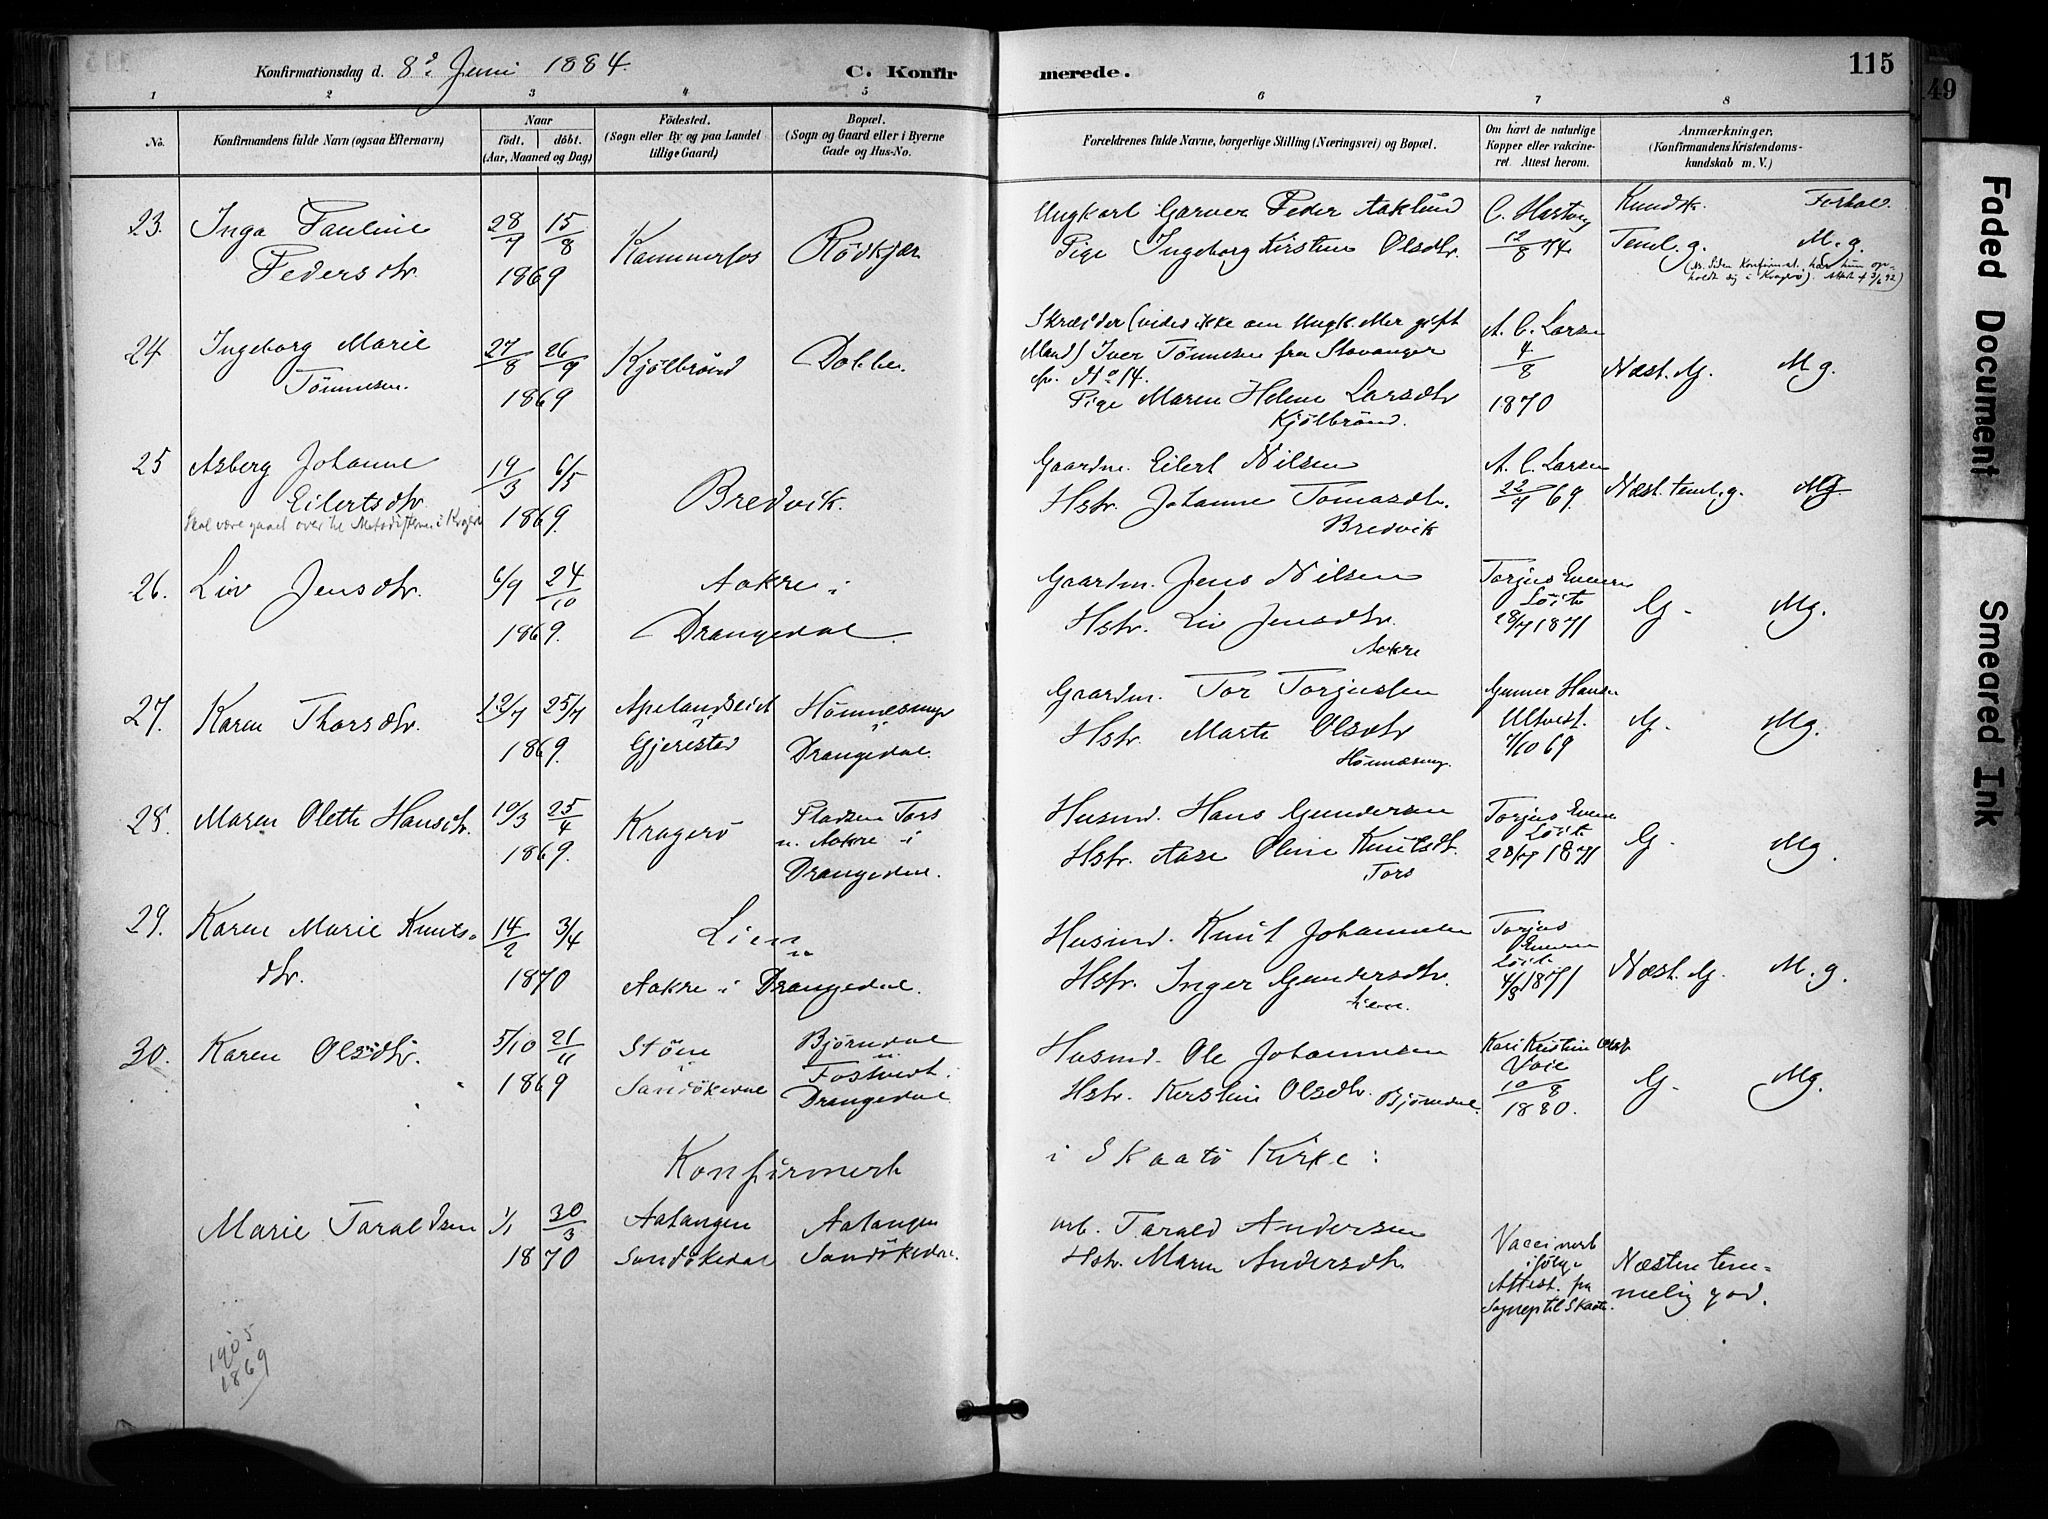 Konfirmationsdag d. 8de Juni 1884. C. Konfirmerede. 115
49
1 2 3 4 5 6 7 8
No. Konfirmandens fulde Navn (ogsaa Efternavn) Naar født. døbt. (Aar, Maaned og Dag) Födested. (Sogn eller By og paa Landet tillige Gaard) Bopæl. (Sogn og Gaard eller i Byerne Gade og Hus-No. Forældrenes fulde Navne, borgerlige Stilling (Næringsvei) og Bopæl. Om havt de naturlige Kopper eller vakcineret. Attest herom. Anmærkninger. (Konfirmandens Kristendomskundskab m. V.)
Kundsk. Forhold.
23. Inga Pauline 28/7 15/8 Kammerfos Rödkjær Ungkarl Garver Peder Aaklund C. Hartvig
Pedersdtr. 1869 Pige Ingeborg Kirstine Olsdtr. 12/8 74. Teml. g. M. g.
(N. Siden Konfirmat. har hun opholdt sig i Kragerø). Attest 3/6 92)
24 Ingeborg Marie 27/8 26/9 Kjölbrönd Dobbe. Skrædder (vides ikke om Ungk. eller gift A. C. Larsen
Tönnesen. 1869 Mand) Iver Tönnesen fra Stavanger 4/8 Næst. G. M g.
cfr. No 14.
Pige Maren Helene Larsdtr 1870
Kjölbrönd.
25 Asberg Johanne 19/3 6/5 Bredvik. Gaardm. Eilert Nilsen A. C. Larsen
Eilertsdtr. 1869. Hstr. Johanne Tomasdtr. 22/7 69. Næst. teml. g. Mg
Skal være gaaet over til Metodisterne i Kragerø Bredvik
26. Liv Jensdtr. 6/9 24/10 Aakre i Gaardm. Jens Nilsen Torjus Evensen
1869. Drangedal. Hstr. Liv Jensdtr. Löite G. Mg.
Aakre 28/7 1871
27. Karen Thorsdtr. 12/7 25/7 Apelandseidet Hönnesung Gaardm. Tor Torjussen Gunner Hansen
1869. i Gjerestad i Drangedal. Hstr. Marte Olsdtr G. Mg.
Hönnæsung. 7/10 69
28. Maren Olette Hansdtr. 10/3 25/4 Kragerö Pladsen Tors Husmd. Hans Gundersen Torjus Evensen
1869. u. Aakre i Hstr. Aase Oline Knutsdtr. Löite G. Mg.
Drangedal. Tors 28/7 1871
29. Karen Marie Knuts- 14/2 3/4 Lien Husmd. Knut Johannesen Torjus
dtr. 1870 u. Aakre i Drangedal. Hstr. Inger Gundersdtr. Evensen Löite Næst. G. M. g.
Lien. 4/8 1871
30. Karen Olsdtr. 5/10 21/11 Stöle Björndal Husmd. Ole Johannesen Kari Kristine Olsdtr
1869 i Sandökedal u Tostvedt. Hstr. Kerstine Olsdtr. Björndal. Voie G. Mg.
Drangedal 10/8 1880.
Konfirmert i Skaatö Kirke:
Marie Taraldsen 1/1 30/3 Aatangen Aatangen arb. Tarald Andersen Vaccinert
1870 Sandökedal Sandökedal. Hstr. Maren Andersdtr. ifölge Næsten tem-
Attest. fra melig god.
Sognep til Skaatö.
1905
1869
Faded Document
Smeared Ink